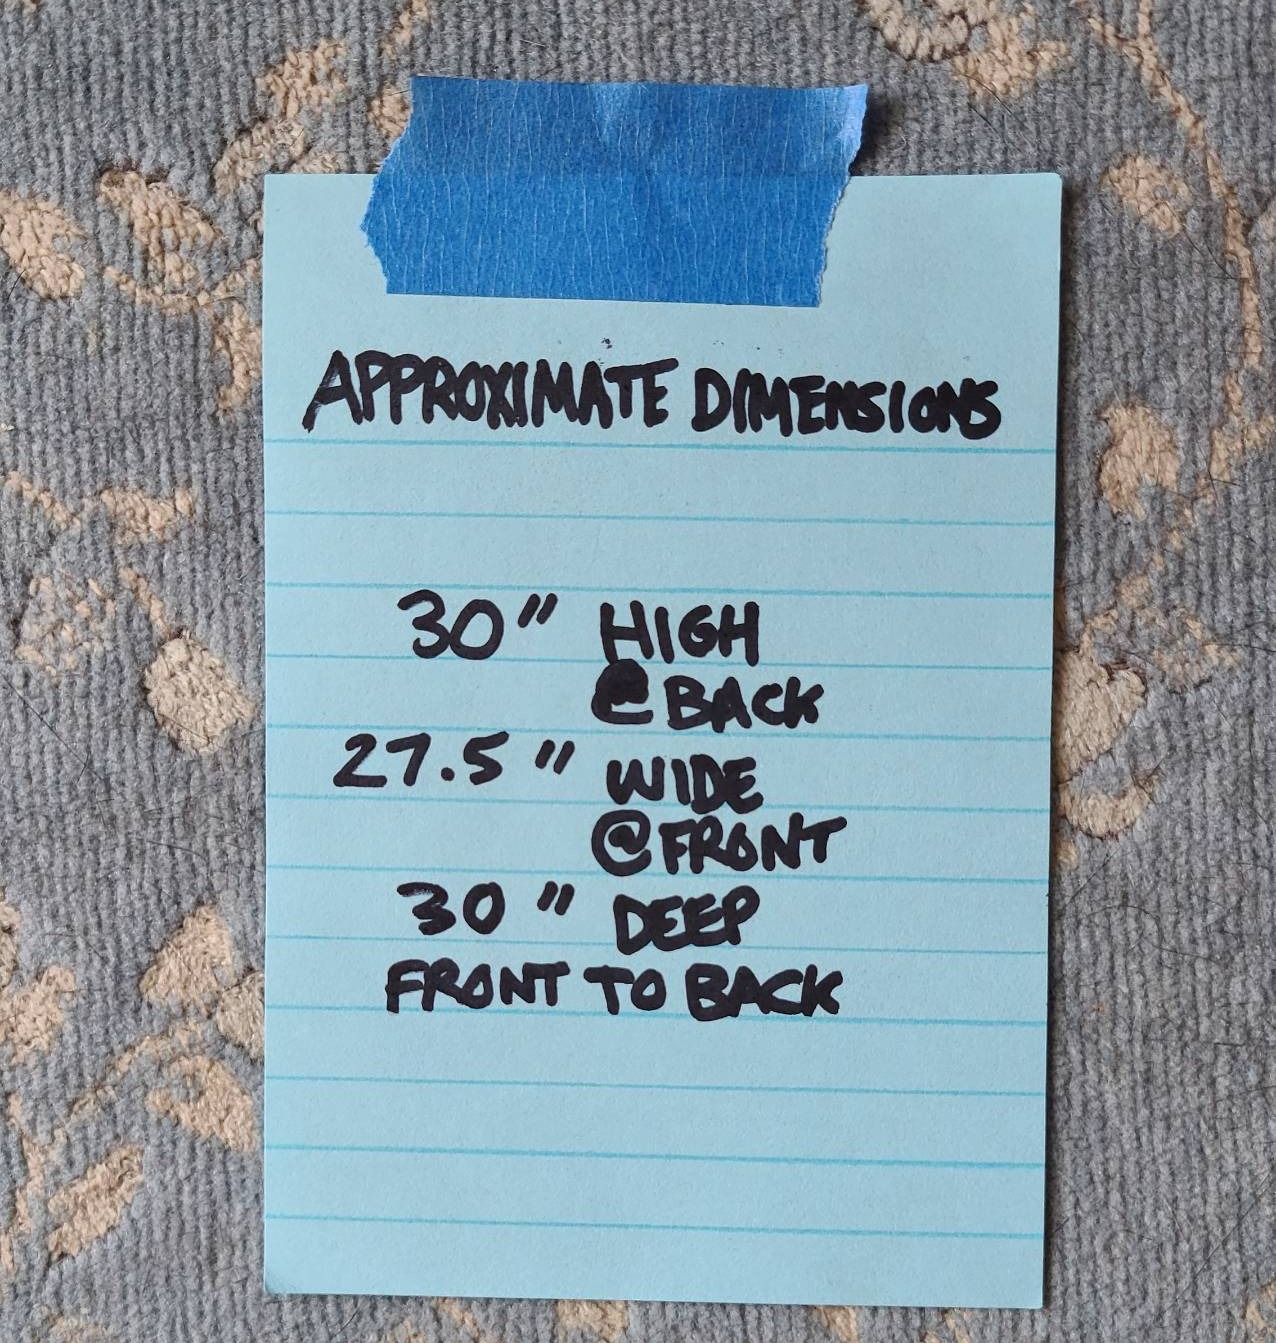 APPROXIMATE DIMENSIONS
30" HIGH
@ BACK
27.5" WIDE
@ FRONT
30" DEEP
FRONT TO BACK